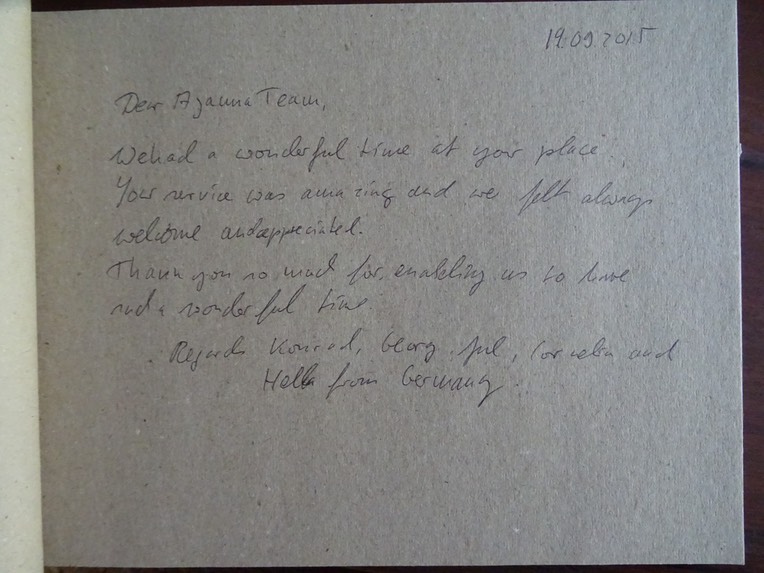 19.09.2015
Dear Ayanna Team,
We had a wonderful time at your place.
Your service was amazing and we felt always
welcome and appreciated.
Thank you so much for enabling us to have
such a wonderful time
Regards Konrad, Georg, Cornelia and
Hella from Germany.